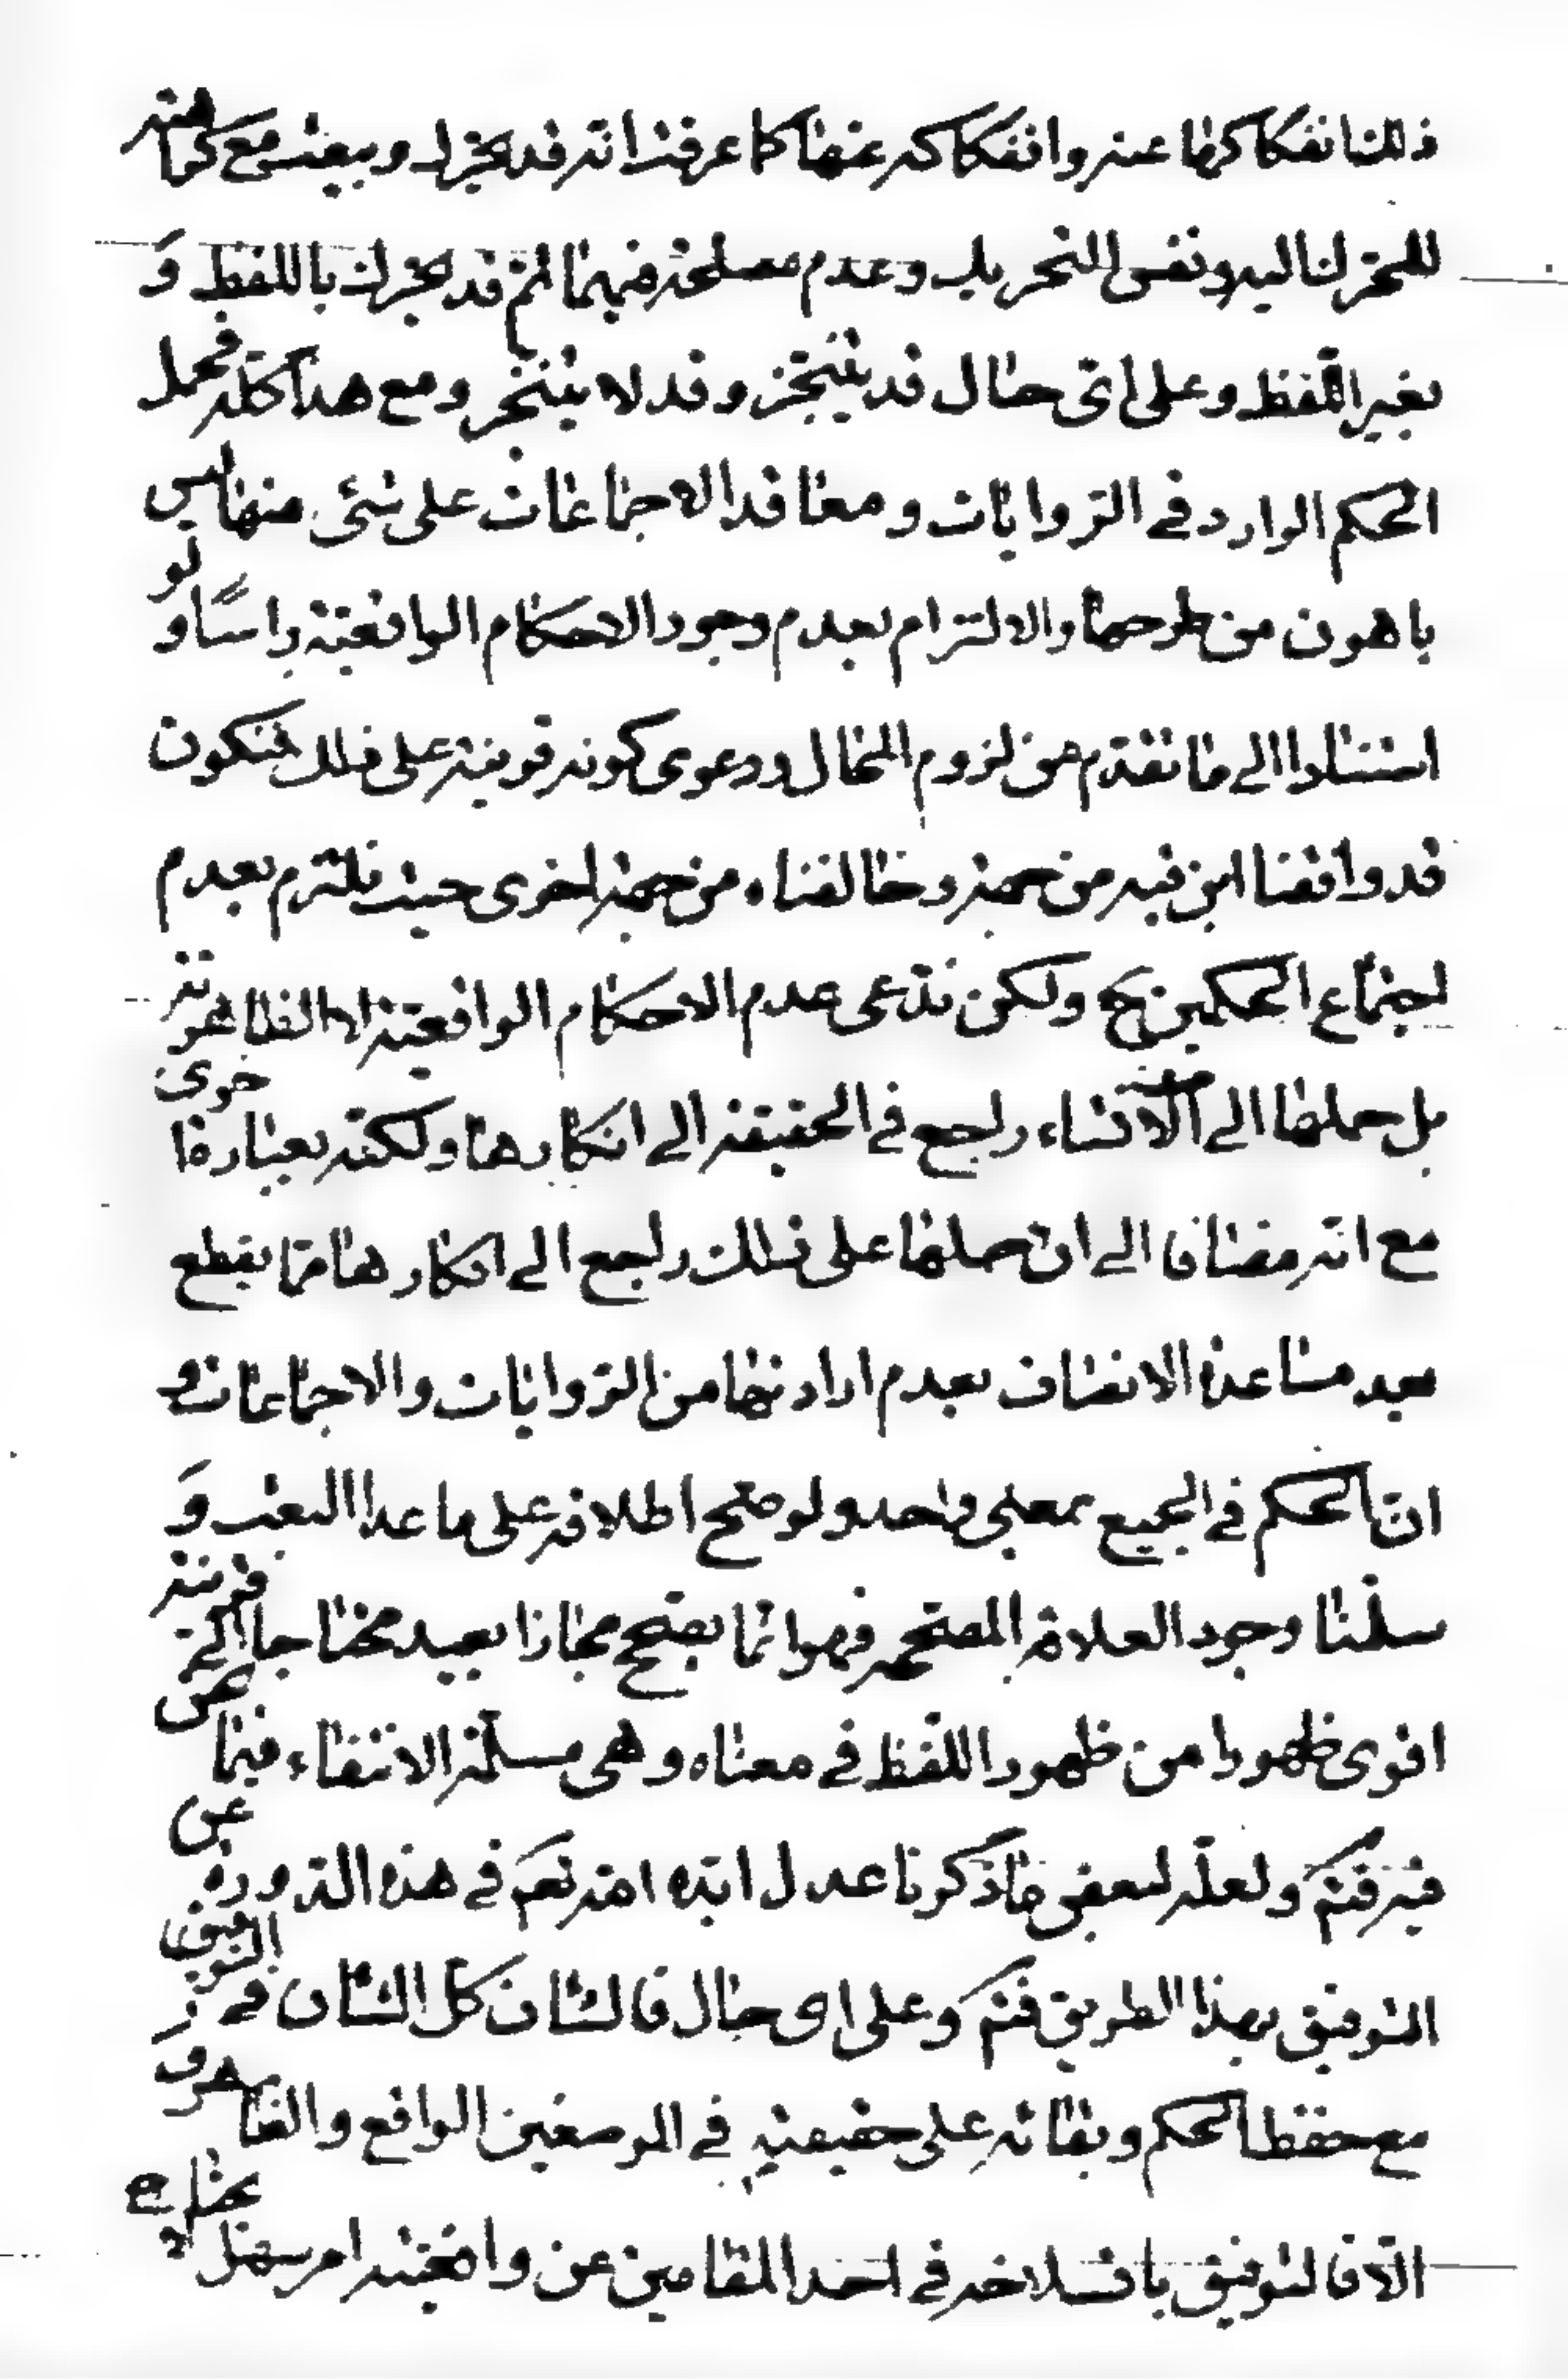 ذلك انفكاكها عنه وانفكاكه عنها كما عرفت انه قد يحرك ويبعث مع كراهته
للمحرك اليه ونفس التحريك وعدم مصلحة فيهما ثم قد يحرك باللفظ و
بغير اللفظ وعلى اى حال قد ينجز وقد لا ينجز ومع هذا كله فحمل
الحكم الوارد فى الروايات ومعاقد الاجماعات على شئ منها ليس
باهون من طرحها والالتزام بعدم وجود الاحكام الواقعية راسًا ولو
استنادا الى ما تقدم من لزوم المحال ودعوى كونه قرينة على ذلك فتكون
قد وافقنا ابن قبه من جهة وخالفناه من جهة اخرى حيث نلتزم بعدم
اجتماع الحكمين ح ولكن ندعى عدم الاحكام الواقعية لا الظاهرية
بل حملها الى الانشاء راجع فى الحقيقة الى انكارها ولكنه بعبارة اخرى
مع انه مضافا الى ان حملها على ذلك راجع الى انكارها مما يقطع
بعيد مساعدة الانصاف بعدم ارادتها من الروايات والاجماعات و
ان الحكم فى الجميع بمعنى واحد ولو صح اطلاقه على ما عدا البعث و
سلمنا وجود العلاقة المصححه فهو انما يصح مجازا بعيد محتاجا الى قرينة
اقوى ظهورا من ظهور اللفظ فى معناه وهى مسلمة الانتفاء فيما نحن
فيه فتم ولعله لبعض ما ذكرنا عدل ايده الله تعم فى هذه الدورة عن
التوفيق بهذا الطريق فتم وعلى اى حال فالشان كل الشان فى التوفيق
مع حفظ الحكم وبقائه على حقيقته فى الموضعين الواقع والظاهر و
الا فالتوفيق بانسلاخه فى احد المقامين عن واقعيته امر سهل